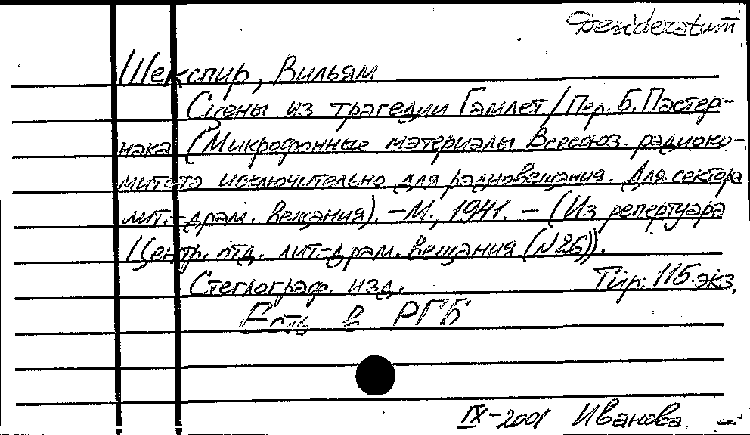 Desideratum
Шекспир, Вильям
Сцены из трагедии Гамлет / Пер. Б. Пастер-
нака (Микрофонные материалы Всесоюз. радиоко-
митета исключительно для радиовещания. Для сектора
лит.-драм. вещания). – М., 1941. – (Из репертуара
Центр. отд. лит-драм. вещания (№26)).
Стеглограф. изд. Тир. 115 экз.
Есть в РГБ
IX-2001 Иванова